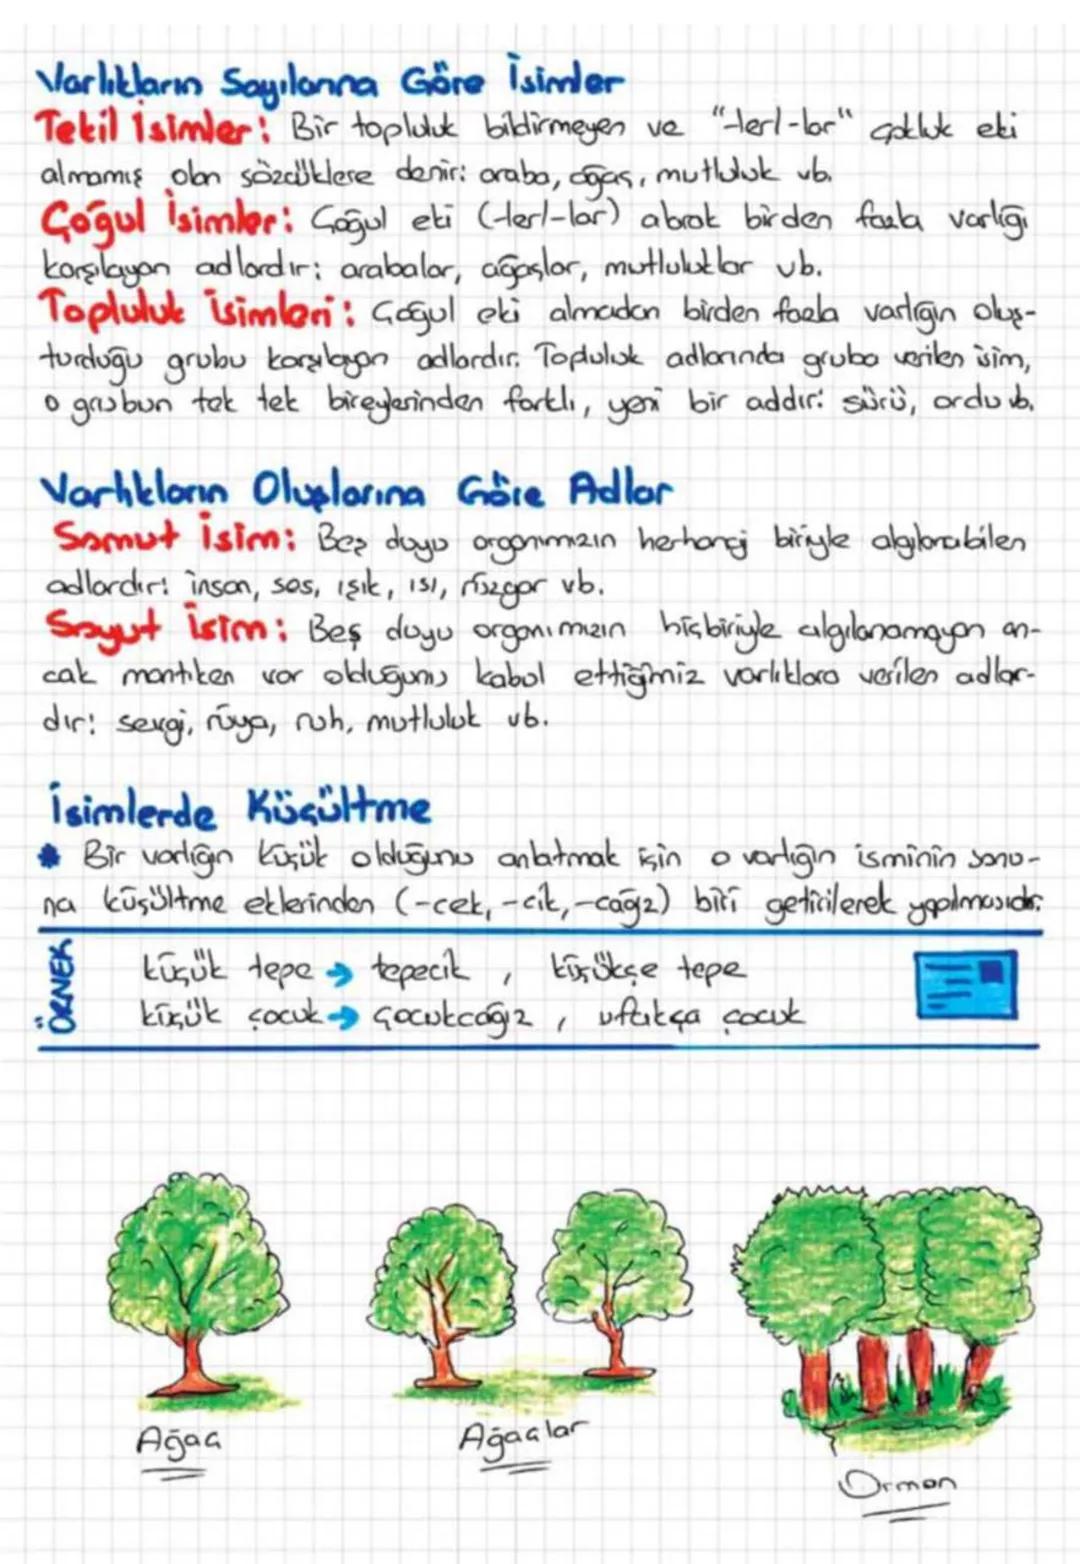 Varlıkların Sayılarına Göre İsimler
Tekil İsimler: Bir topluluk bildirmeyen ve "-ler/-lar" çokluk eki
almamış olan sözcüklere denir: araba, ağaç, mutluluk vb.
Çoğul İsimler: Çoğul eki (-ler/-lar) alarak birden fazla varlığı
karşılayan adlardır: arabalar, ağaçlar, mutluluklar vb.
Topluluk İsimleri: Çoğul eki almadan birden fazla varlığın oluş-
turduğu grubu karşılayan adlardır. Topluluk adlarında gruba verilen isim,
o grubun tek tek bireylerinden farklı, yeni bir addır: sürü, ordu vb.
Varlıkların Oluşlarına Göre Adlar
Somut İsim: Beş duyu organımızın herhangi biriyle algılanabilen
adlardır: insan, ses, ışık, ısı, rüzgar vb.
Soyut İsim: Beş duyu organımızın hiçbiriyle algılanamayan an-
cak mantıken var olduğunu kabul ettiğimiz varlıklara verilen adlar-
dır: sevgi, rüya, ruh, mutluluk vb.
İsimlerde Küçültme
* Bir varlığın küçük olduğunu anlatmak için o varlığın isminin sonu-
na küçültme eklerinden (-cek, -cik, -cağız) biri getirilerek yapılmasıdır.
ÖRNEK
küçük tepe → tepecik, küçükçe tepe
küçük çocuk → çocukcağız, ufakça çocuk
Ağaç
Ağaçlar
Orman